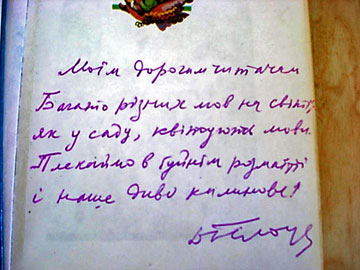 Моїм дорогим читачам
Багато різних мов на світі,
як у саду, квітують мови.
Плекаймо в буйнім розмаїтті
і наше диво калинове!
Д Білоус